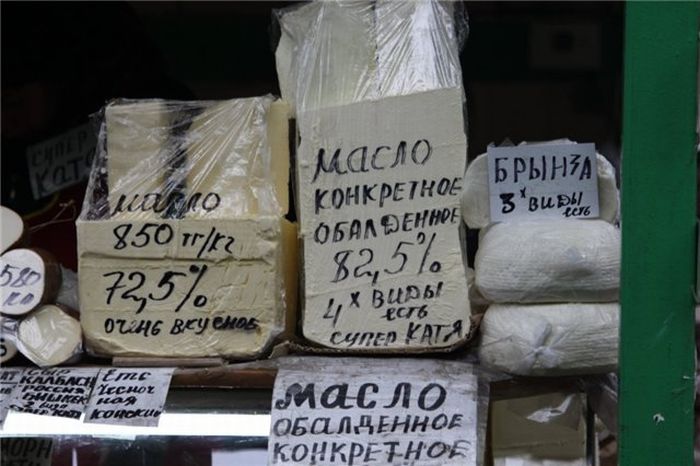 СУПЕР
КАТЯ
МАСЛО
850 тг/кг
72,5%
ОЧЕНЬ ВКУСНОЕ
МАСЛО
КОНКРЕТНОЕ
ОБАЛДЕННОЕ
82,5%
4х ВИДЫ
ЕСТЬ
СУПЕР КАТЯ
БРЫНЗА
3х ВИДЫ
ЕСТЬ
580
СЫР
КАЛБАСН
РОССИЯ
БИШКЕК
КАТЯ
ЕТЬ
ЧЕСНОЧ
НАЯ
КОПСКИЙ
МАСЛО
ОБАЛДЕННОЕ
КОНКРЕТНОЕ